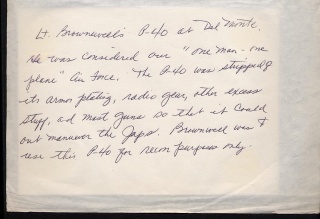 Lt. Brownewell's P-40 at Del Monte.
He was considered our "one man - one
plane" Air Force. The P-40 was stripped of
its armor plating, radio gear, other excess
stuff, ad most guns so that it could
out maneuver the Japs. Brownwell was to
use this P-40 for recon purposes only.